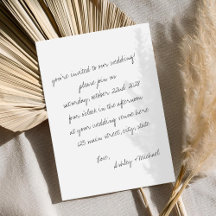 you're invited to our wedding!
please join us
saturday, october 22nd, 2021
four o'clock in the afternoon
at your wedding venue here
123 main street, city, state
love,
Ashley + Michael